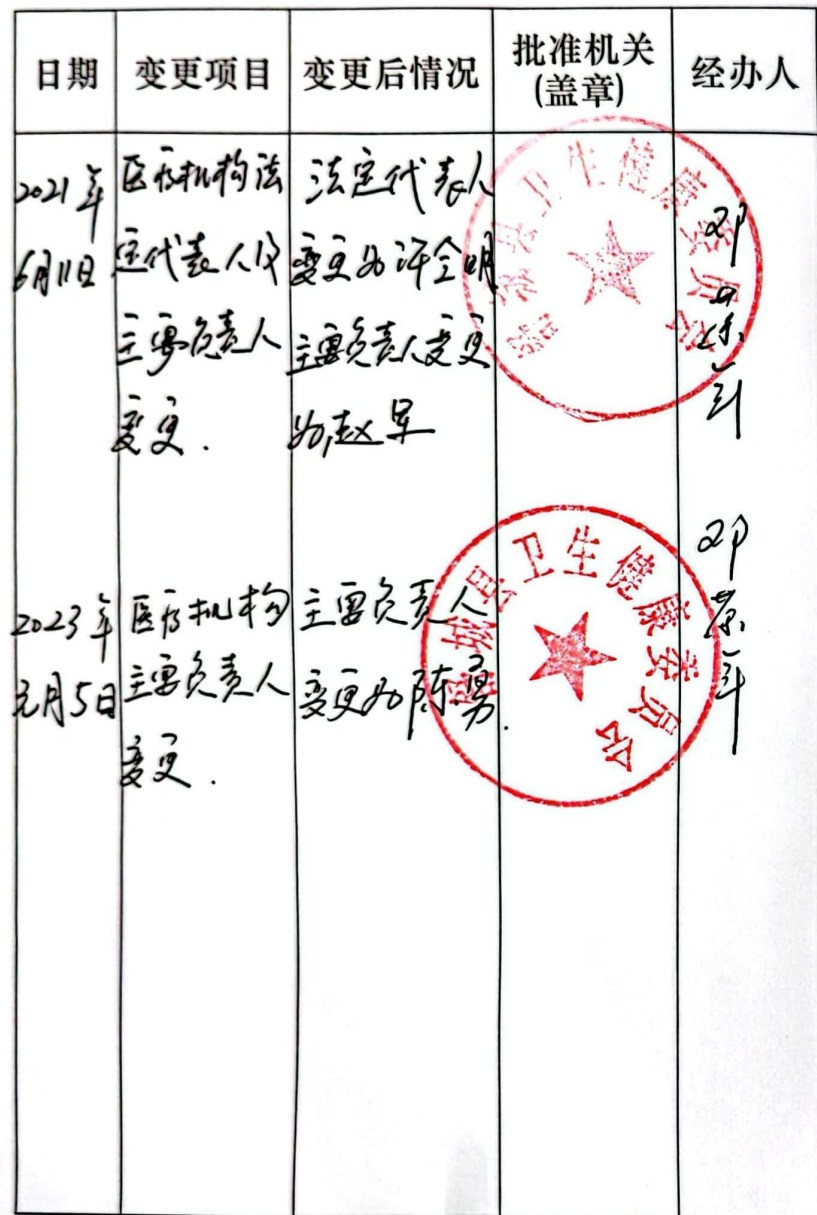 日期 变更项目 变更后情况 批准机关(盖章) 经办人
2021年
6月11日
医疗机构法
定代表人及
主要负责人
变更.
法定代表人
变更为许全明
主要负责人变更
为赵军
县卫生健康委员会
邓
2023年
元月5日
医疗机构
主要负责人
变更.
主要负责人
变更为陈勇.
县卫生健康委员会
邓